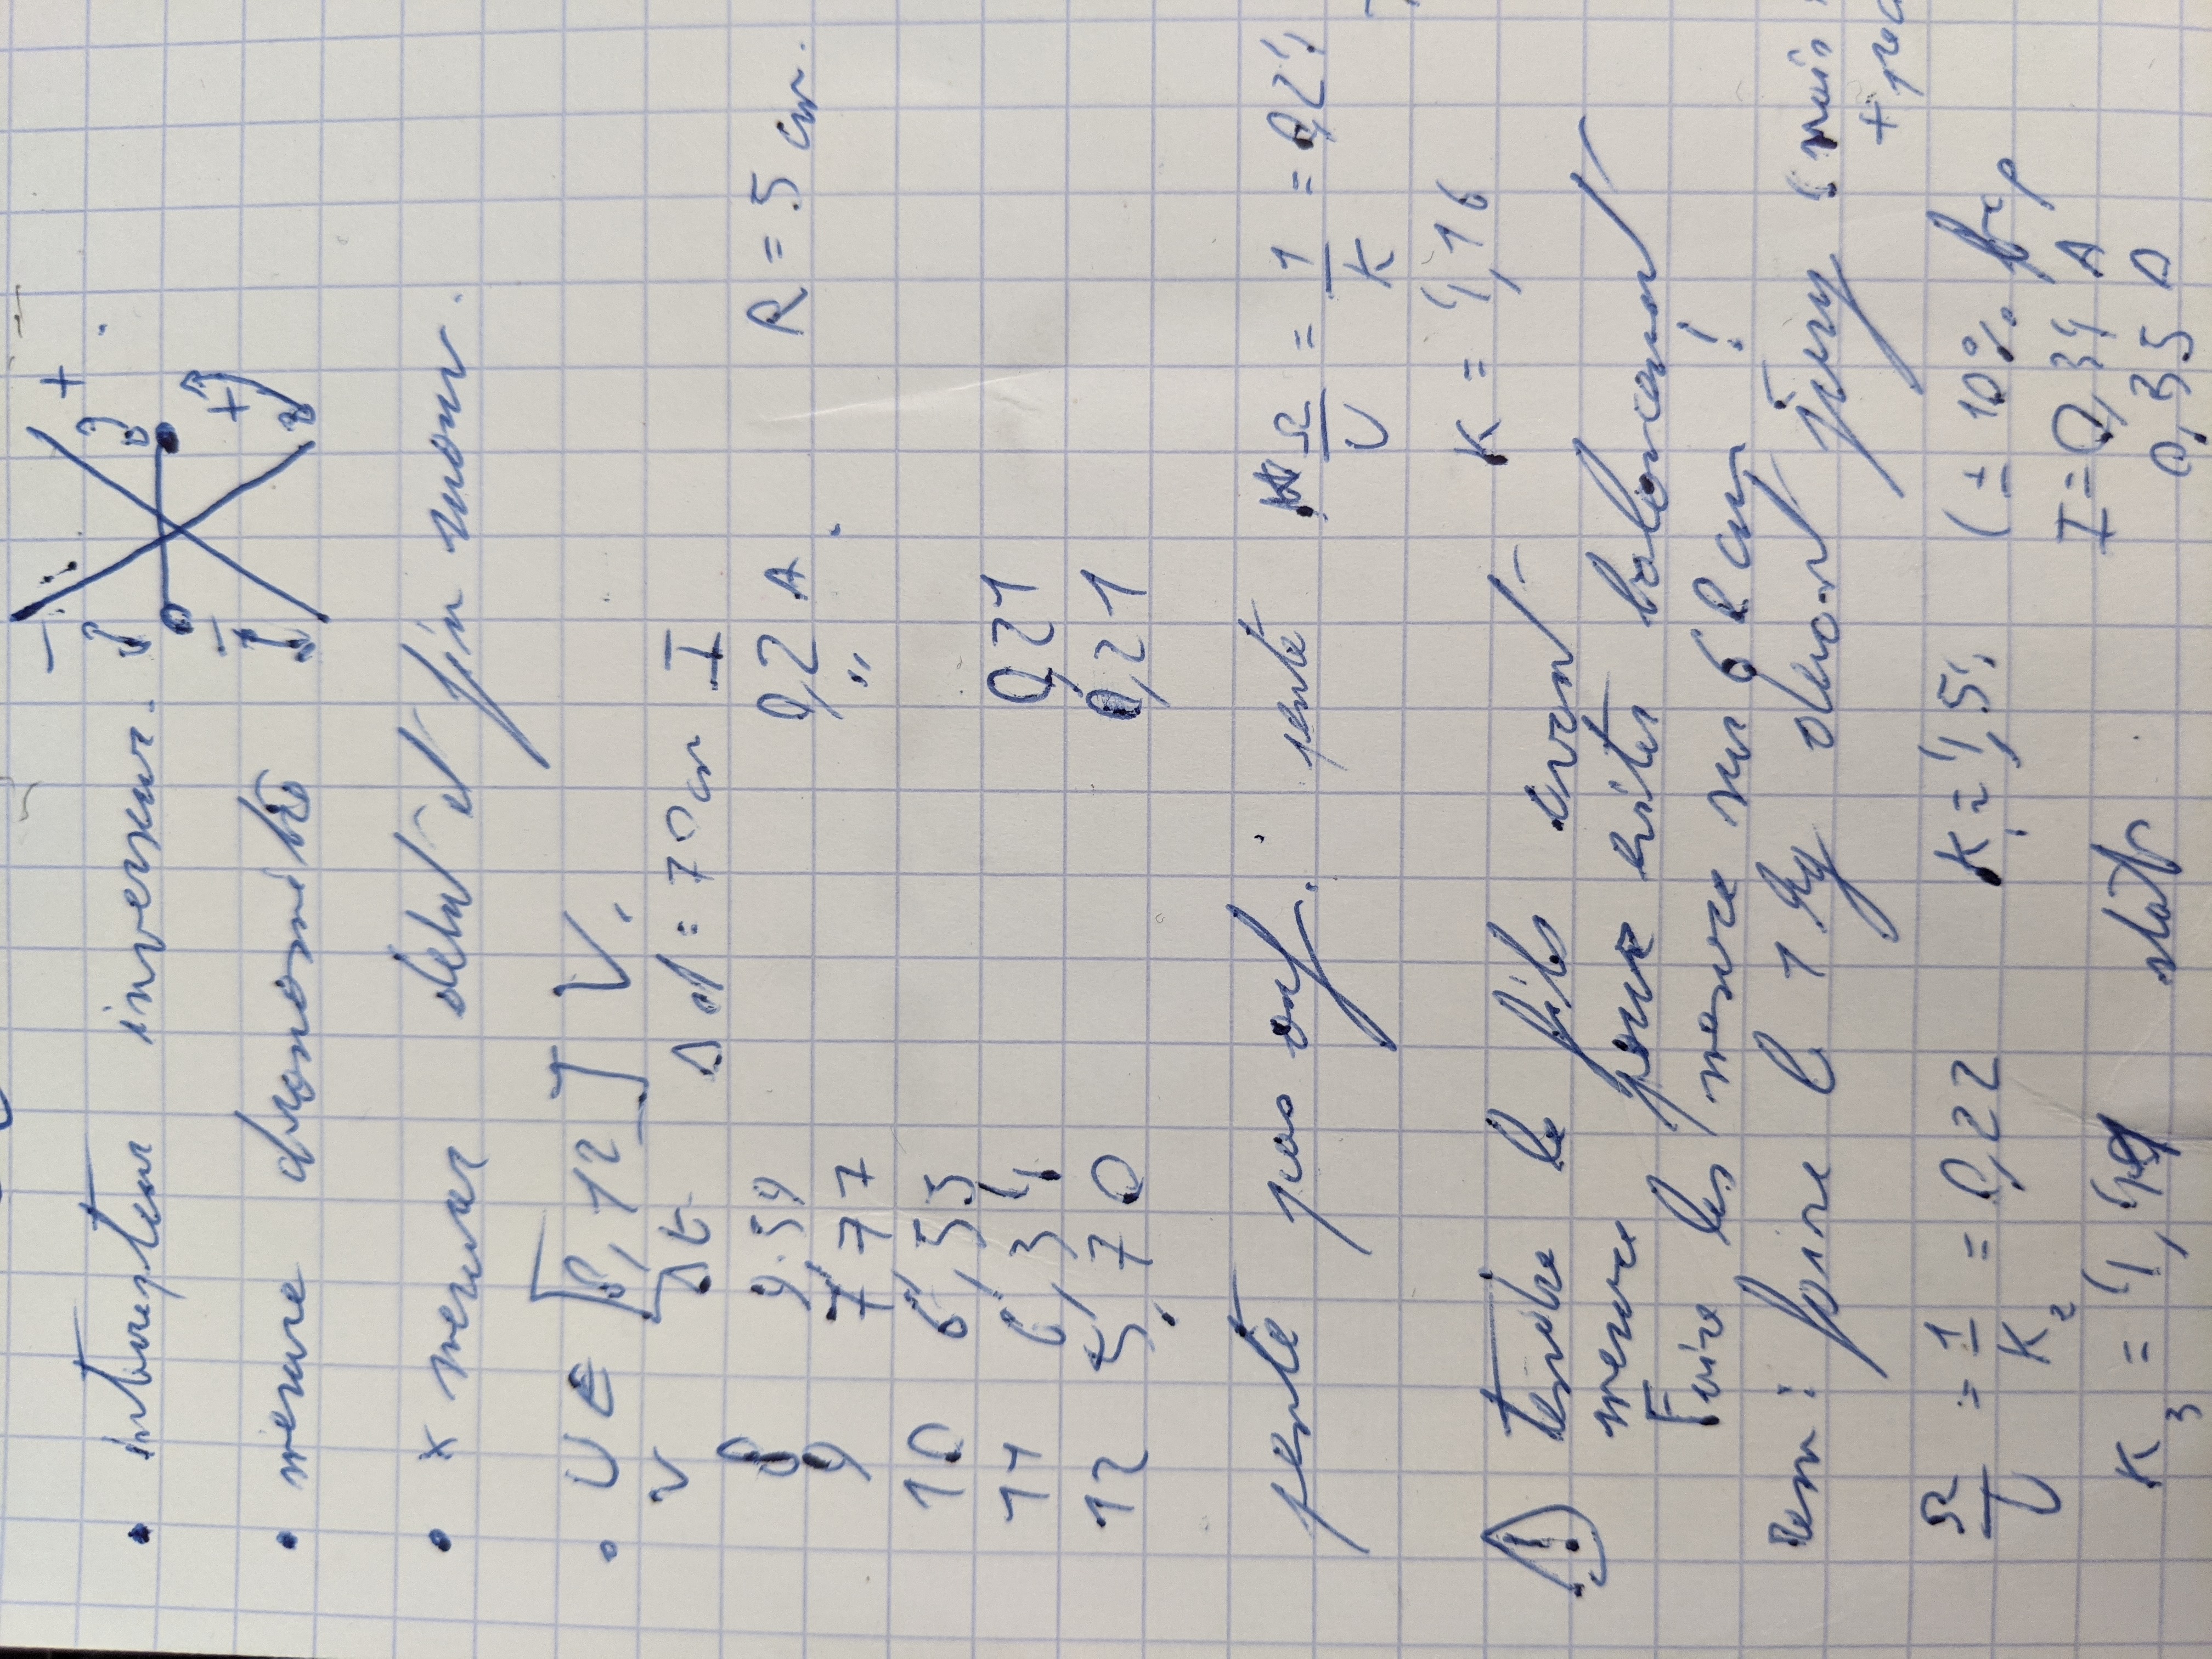 - +
• interrupteur inverseur.
- +
• mesure chronomètre
• x mesurer debut et fin mouv.
• U ∈ [8, 12] V.
V Δt Δd = 70 cm I
8 9,59 0,2 A R = 5 cm.
9 7,77 "
10 6,55
11 6,34 0,21
12 5,70 0,21
pente pas ouf. pente Ω/U = 1/K = 0,24
K = 4,16
! tendre le fils avant
mesure pour eviter balancement
Faire les mesure sur 60 cm !
rem : faire le 1 kg devant jury (mais
Ω/U = 1/K₂ = 0,22 K = 4,54 (± 10%
I = 0,34 A
K₃ = 4,49 0,35 A